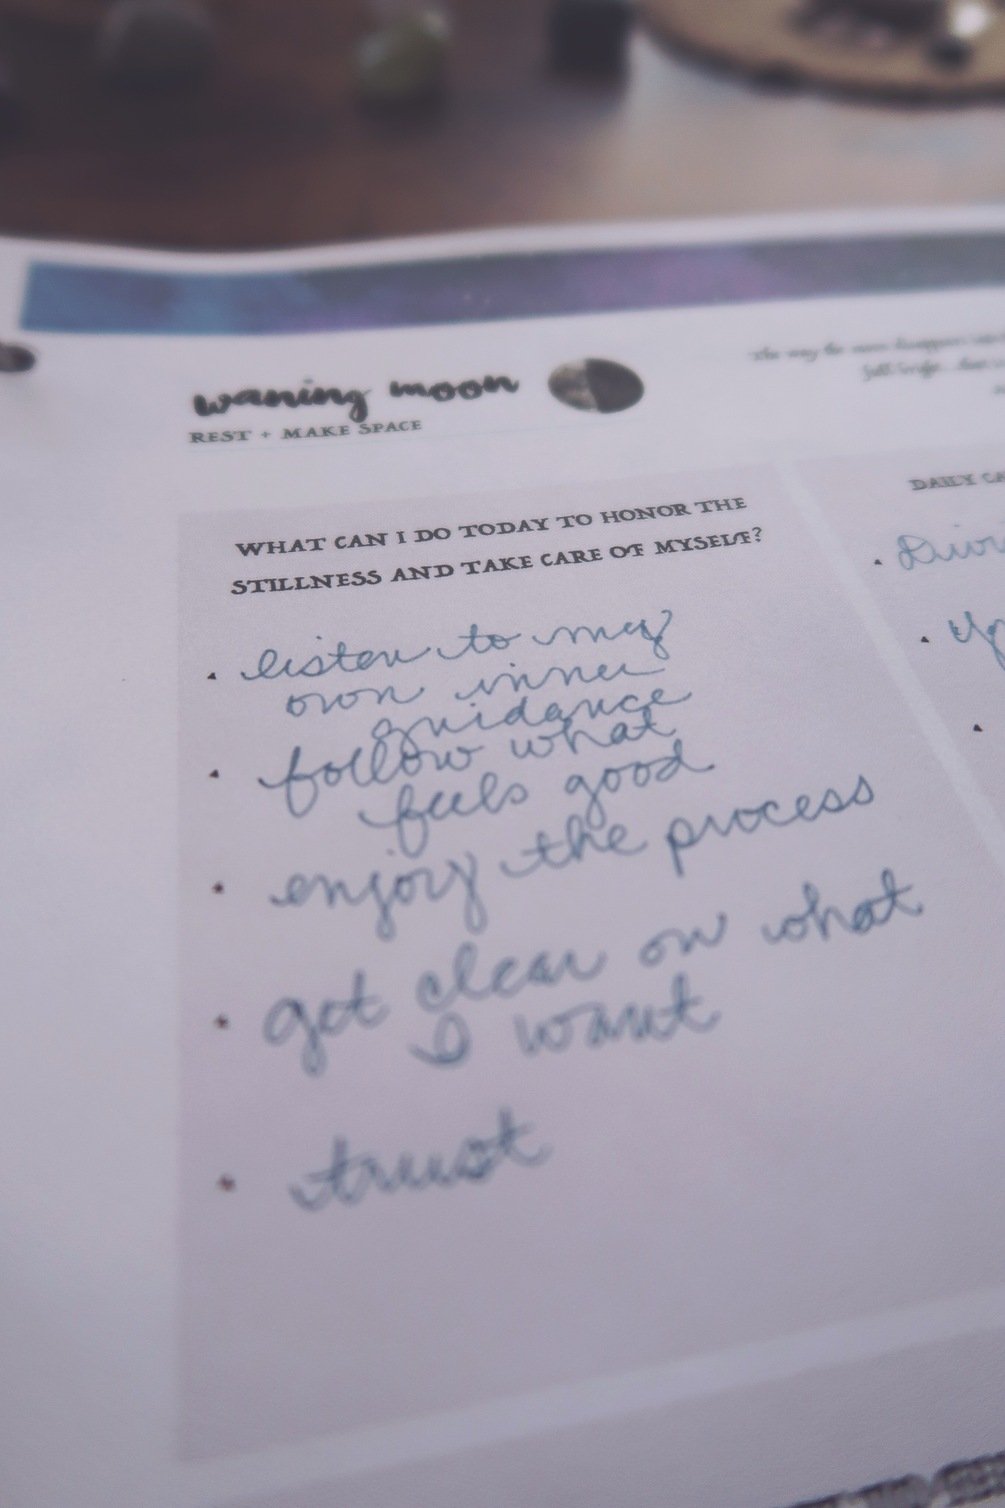 waning moon
REST + MAKE SPACE
WHAT CAN I DO TODAY TO HONOR THE
STILLNESS AND TAKE CARE OF MYSELF?
listen to my
own inner
guidance
follow what
feels good
enjoy the process
get clear on what
I want
trust
The way the moon disappears
DAILY